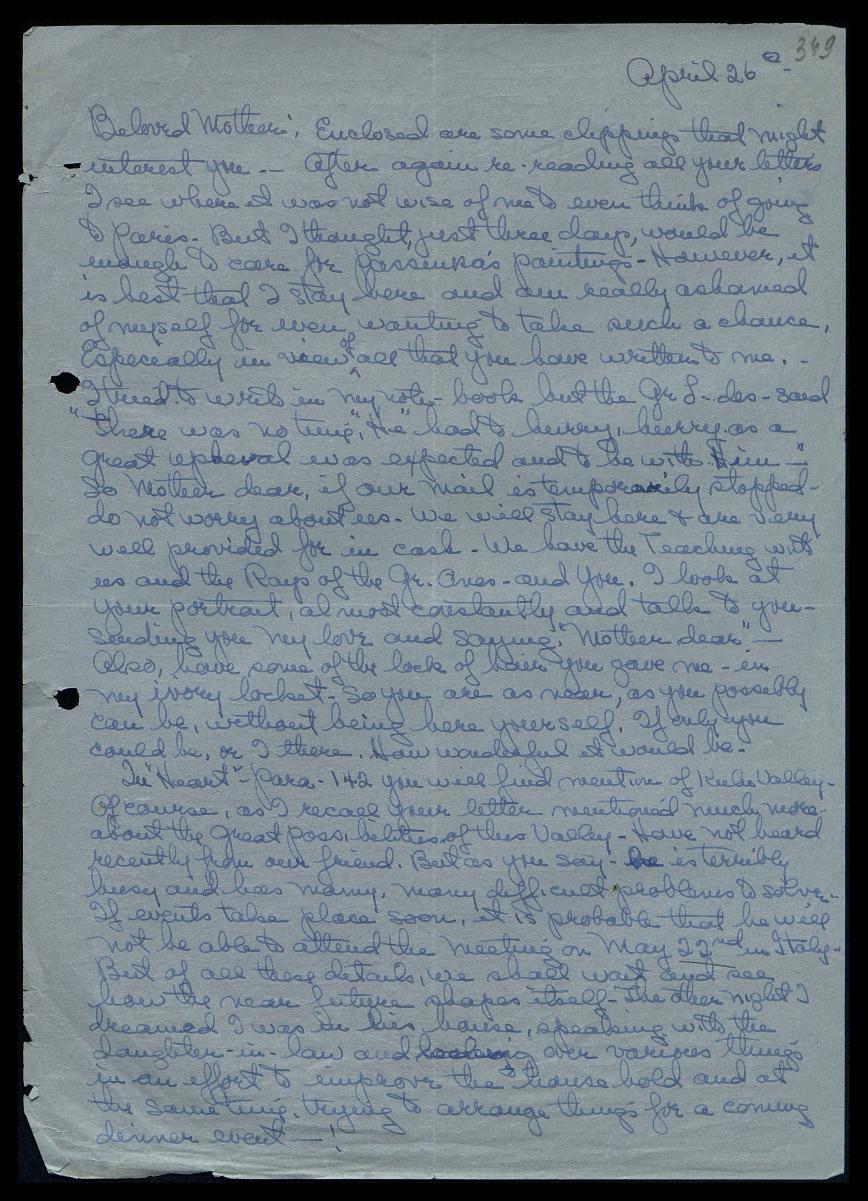 349
April 26
Beloved Mother: Enclosed are some clippings that might
interest you -- After again re-reading all your letters
I see where it was not wise of me to even think of going
to Paris - But I thought, just three days, would be
enough to care for paintings - However, it
is best that I stay here and am really ashamed
of myself for even wanting to take such a chance,
Especially in view of all that you have written to me. -
I tried to write in my note-book but the Gr. said
"there was no time", "He" had to hurry, hurry as a
great upheval was expected and to be with Him -"
So Mother dear, if our mail is temporarily stopped -
do not worry about us. We will stay here & are very
well provided for in cash - We have the Teaching with
us and the Rays of the Gr. Ones - and You. I look at
your portrait, almost constantly and talk to you -
sending you my love and saying, "Mother dear" -
Also, have some of the lock of hair you gave me - in
my ivory locket. So you are as near, as you possibly
can be, without being here yourself. If only you
could be, or I there. How wonderful it would be -
In "Heart" - Para - 142 you will find mention of Kulu Valley -
Of course, as I recall your letter mentioned much more
about the great possibilities of this Valley - Have not heard
recently from our friend. But as you say - he is terribly
busy and has many, many difficult problems to solve -
If events take place soon, it is probable that he will
not be able to attend the meeting on May 22nd in Italy -
But of all these details, we shall wait and see
how the near future shapes itself - The other night I
dreamed I was in his house, speaking with the
daughter-in-law and looking over various things
in an effort to improve the household and at
the same time, trying to arrange things for a coming
dinner event - !